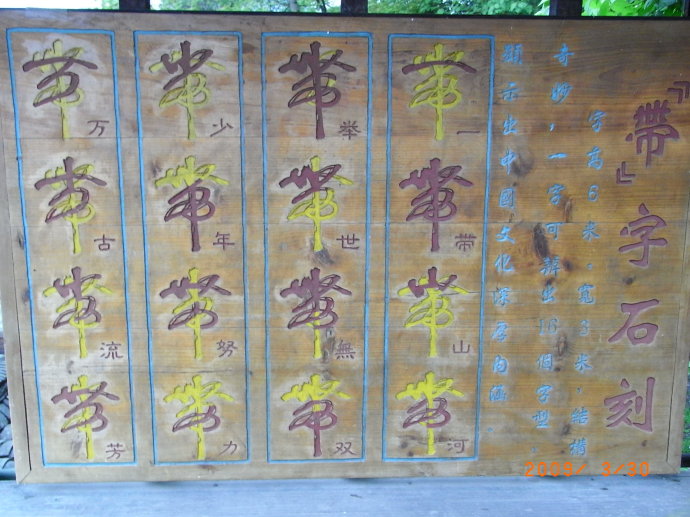 『帶』字石刻
字高6米，寬3米，結構
奇妙，一字可辨出16個字型，
顯示出中國文化深厚內涵。
一带山河
举世無双
少年努力
万古流芳
2009/ 3/30